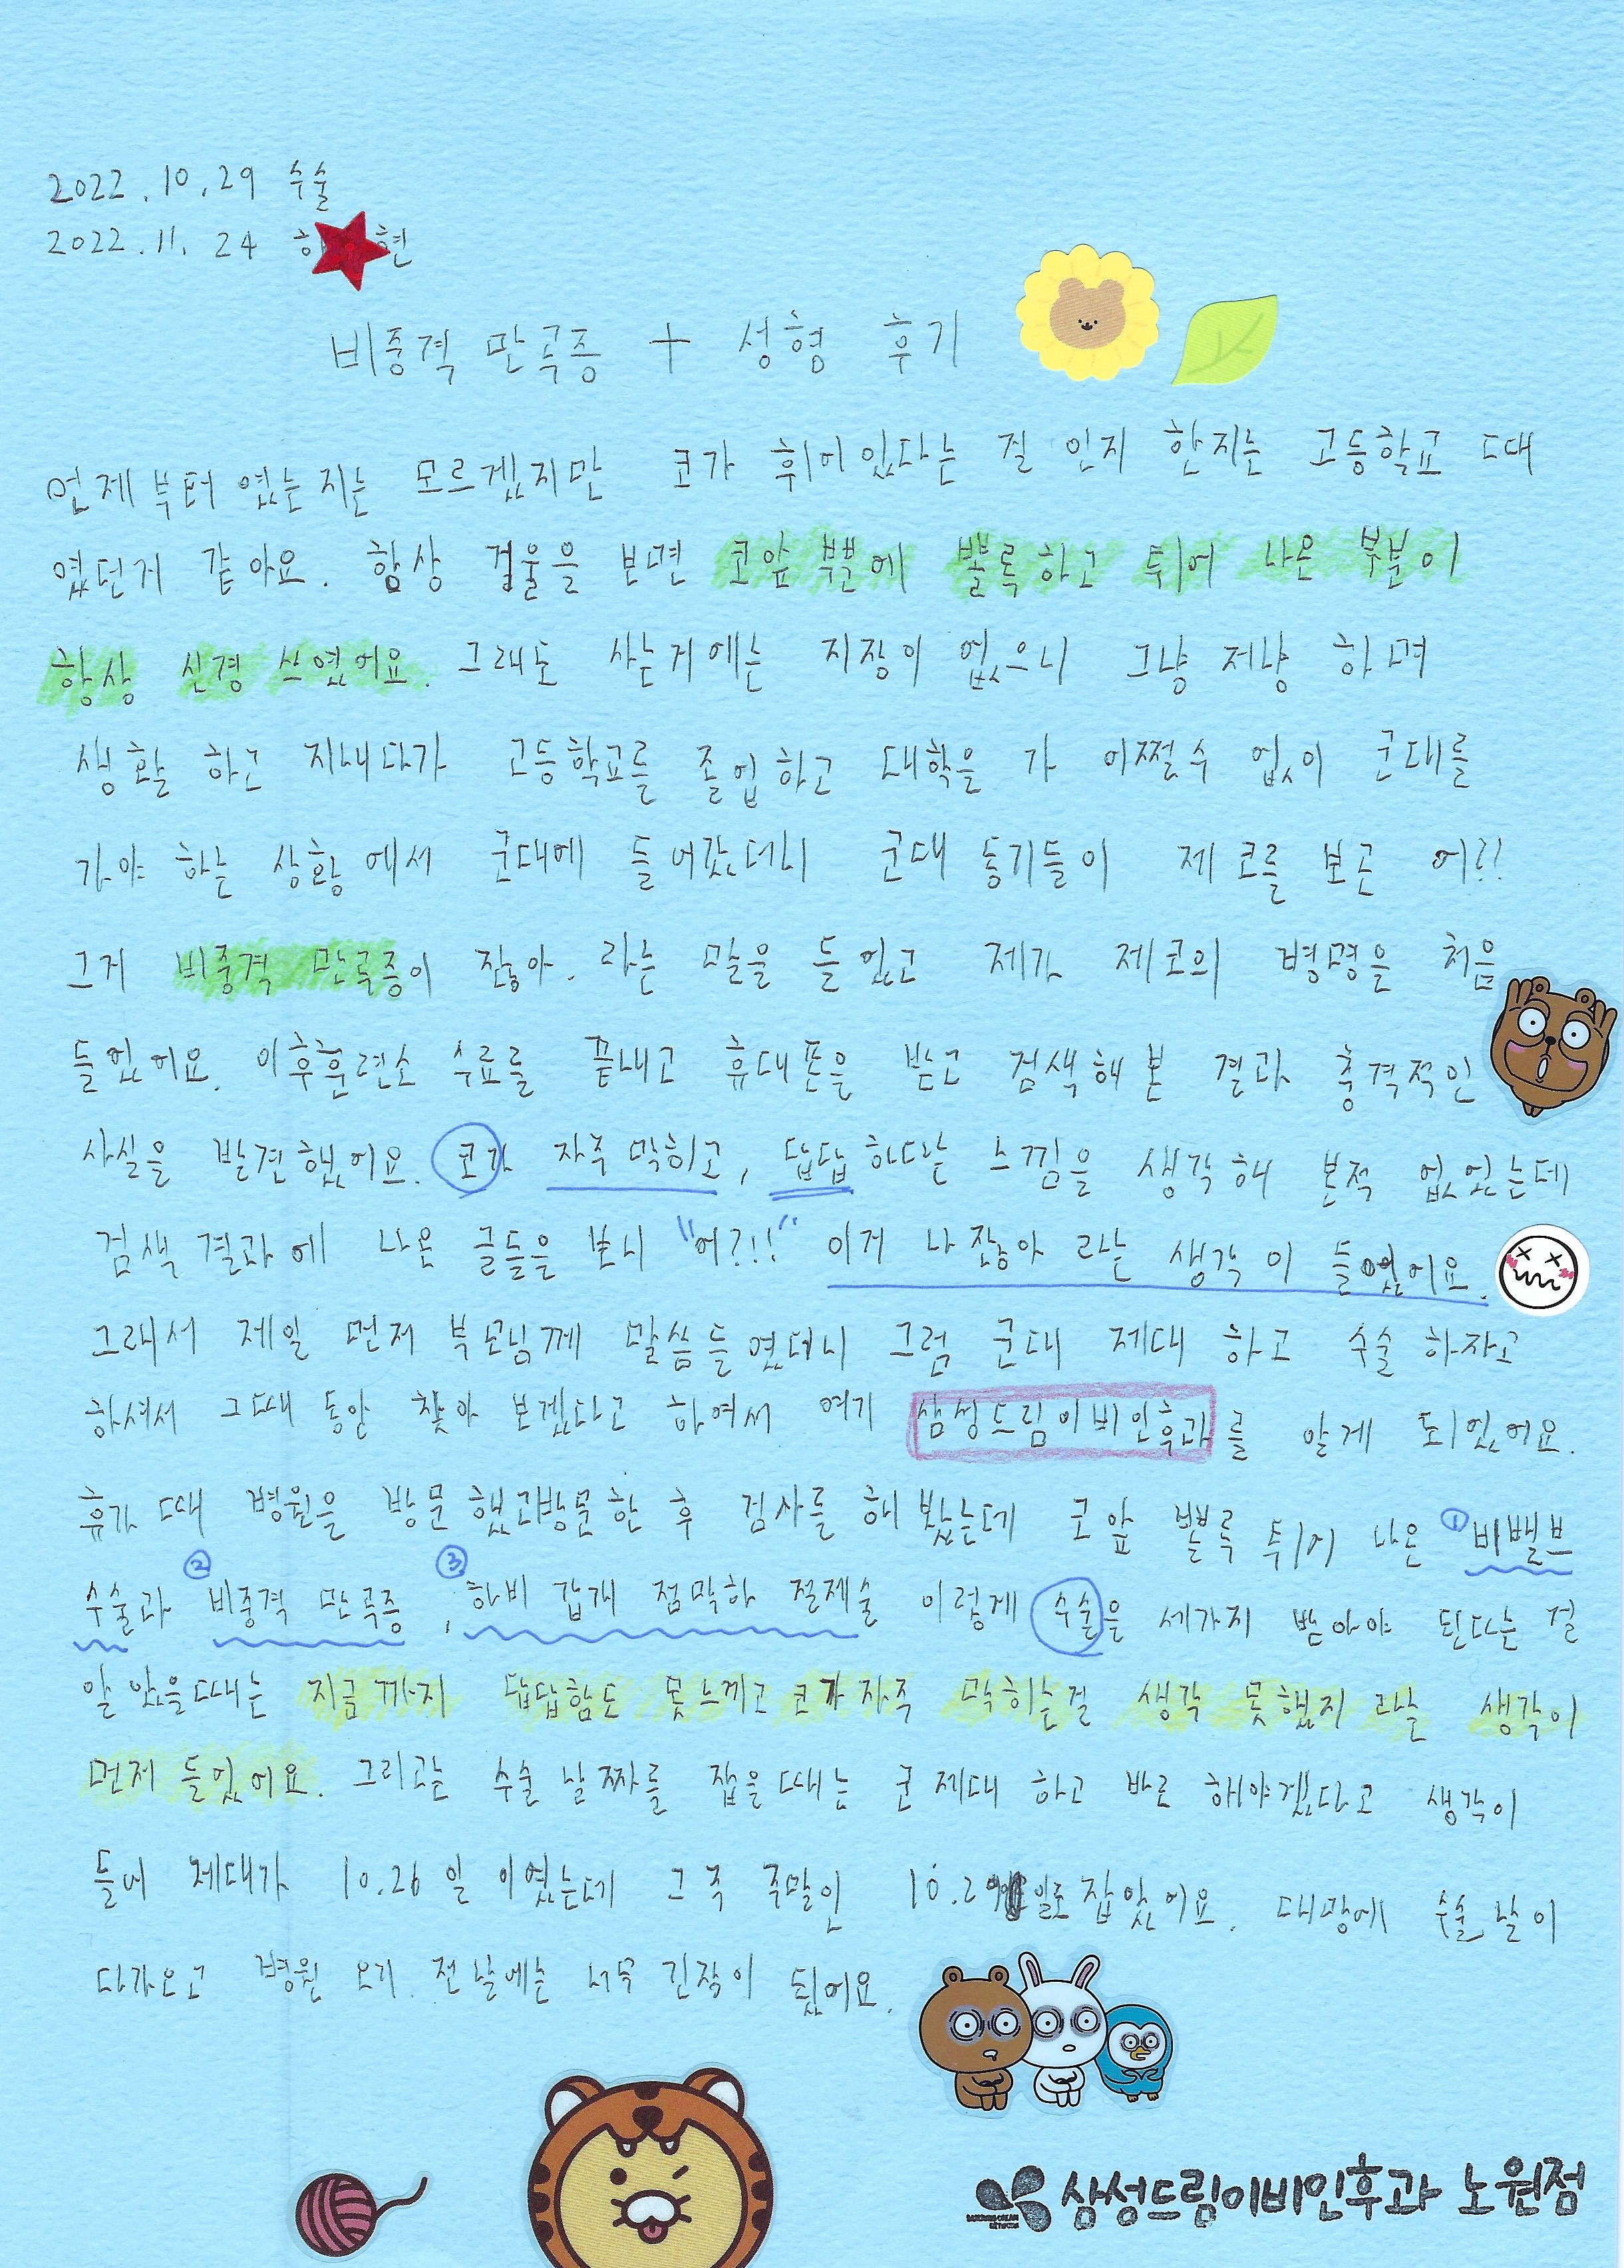 2022.10.29 수술
2022.11.24 현
비중격 만곡증 + 성형 후기
언제부터 였는지는 모르겠지만 코가 휘어있다는 걸 인지 한지는 고등학교 때
였던거 같아요. 항상 거울을 보면 코앞 부분에 뽈록하고 튀어 나온 부분이
항상 신경 쓰였어요. 그래도 사는거에는 지장이 없으니 그냥 저냥 하며
생활 하고 지내다가 고등학교를 졸업하고 대학을 가 어쩔수 없이 군대를
가야 하는 상황에서 군대에 들어갔더니 군대 동기들이 제 코를 보곤 어??
그거 비중격 만곡증이 잖아. 라는 말을 들었고 제가 제코의 병명을 처음
들었어요. 이후훈련소 수료를 끝내고 휴대폰을 받고 검색해 본 결과 충격적인
사실을 발견했어요. 코가 자주 막히고, 답답하다는 느낌을 생각해 본적 없었는데
검색 결과에 나온 글들을 보니 "어?!!" 이거 나 잖아 라는 생각이 들었어요.
그래서 제일 먼저 부모님께 말씀드렸더니 그럼 군대 제대 하고 수술 하자고
하셔서 그때 동안 찾아 보겠다고 하여서 여기 삼성드림이비인후과를 알게 되었어요.
휴가 때 병원을 방문했고방문한 후 검사를 해 봤는데 코 앞 뽈록 튀어 나온 ①비밸브
수술과 ②비중격 만곡증, ③하비 갑개 점막하 절제술 이렇게 수술을 세가지 받아야 된다는 걸
알 았을때는 지금까지 답답함도 못느끼고 코가 자주 막히는걸 생각 못했지 라는 생각이
먼저 들었어요. 그리고는 수술 날짜를 잡을때는 군 제대 하고 바로 해야겠다고 생각이
들어 제대가 10.26 일 이였는데 그 주 주말인 10.29일로 잡았어요. 대망에 수술 날이
다가오고 병원 오기 전날에는 너무 긴장이 됬어요.
삼성드림이비인후과 노원점